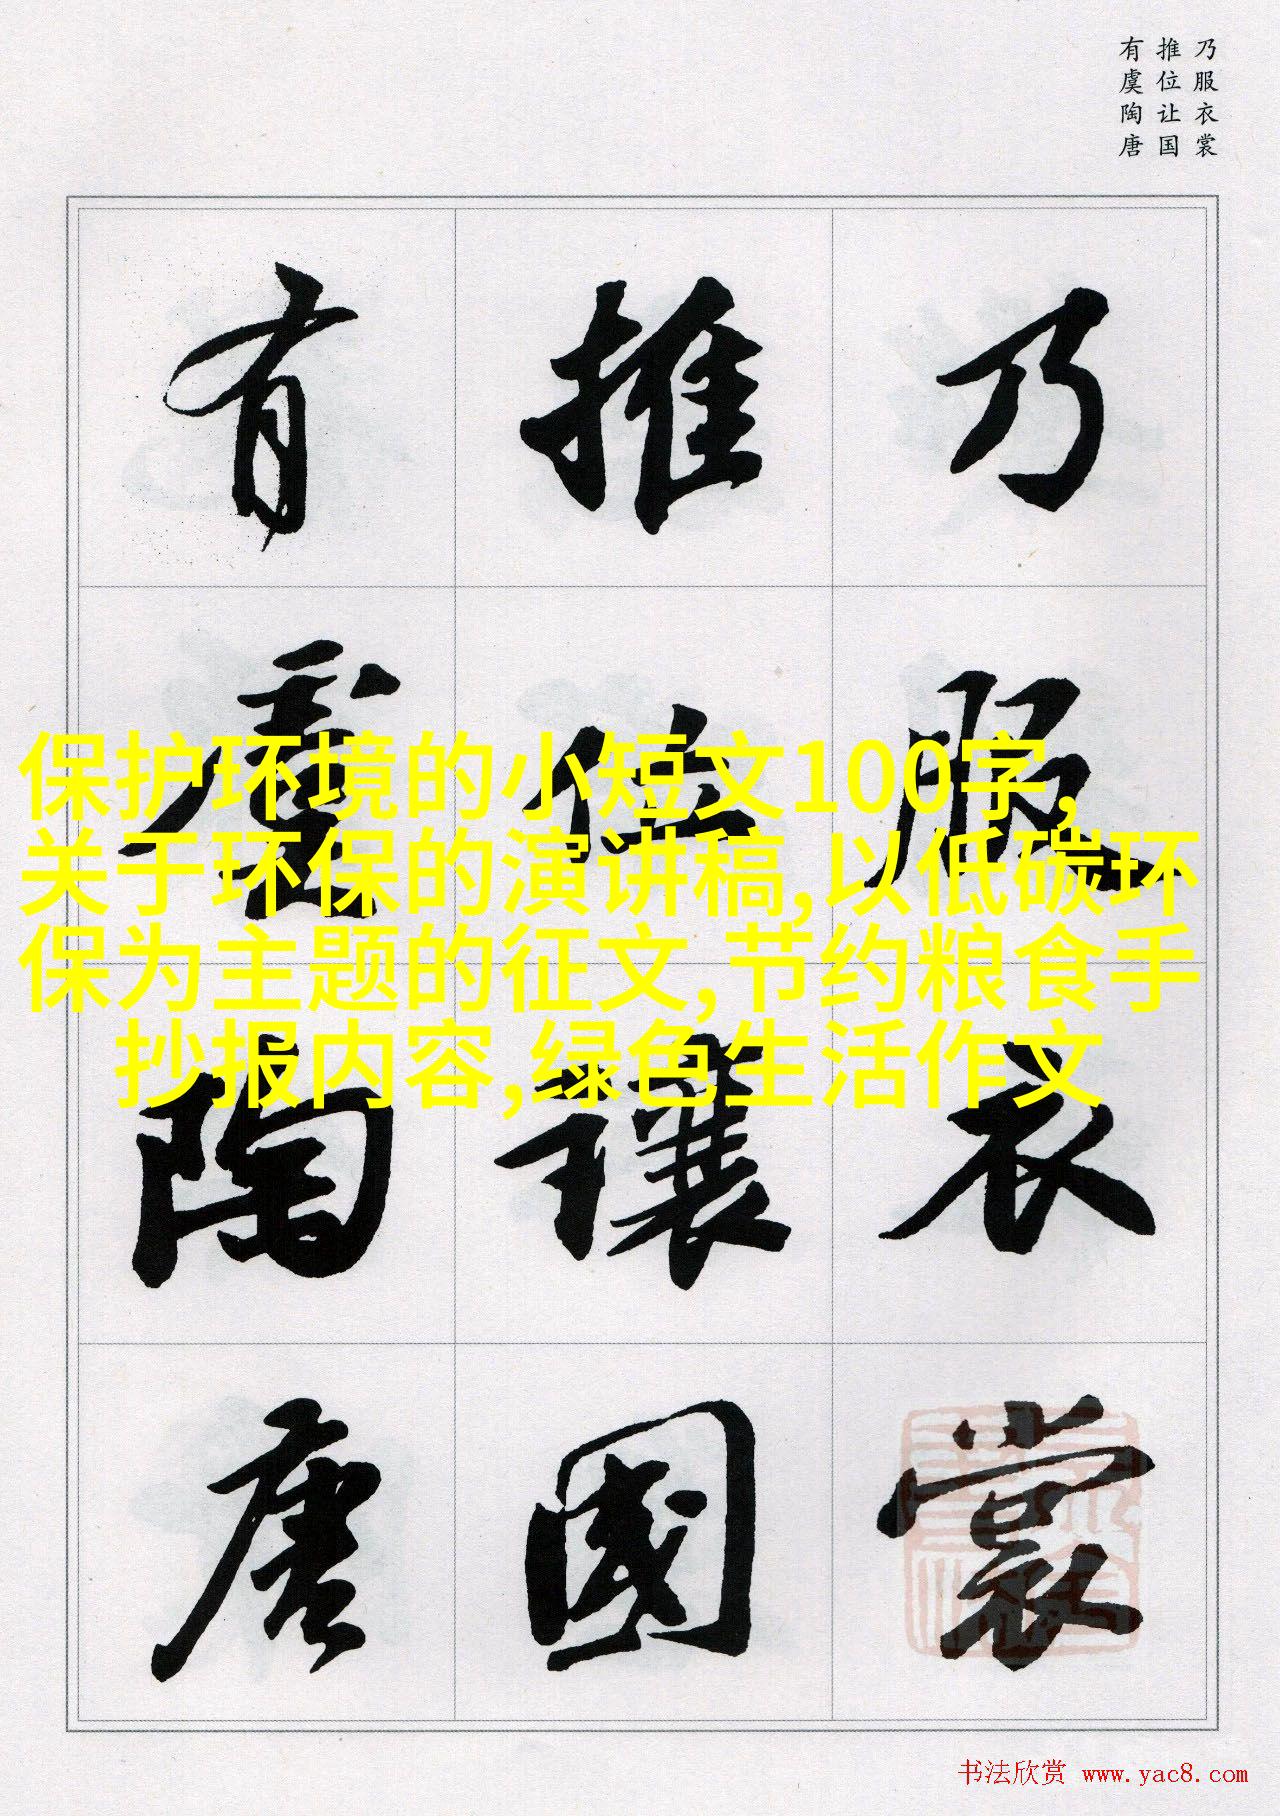 乃服衣裳
推位让国
有虞陶唐
乃服衣裳
推位讓國
有虞陶唐
保护环境的小短文100字,
关于环保的演讲稿,以低碳环
保为主题的征文,节约粮食手
抄报内容,绿色生活作文
书法欣赏 www.yac8.com